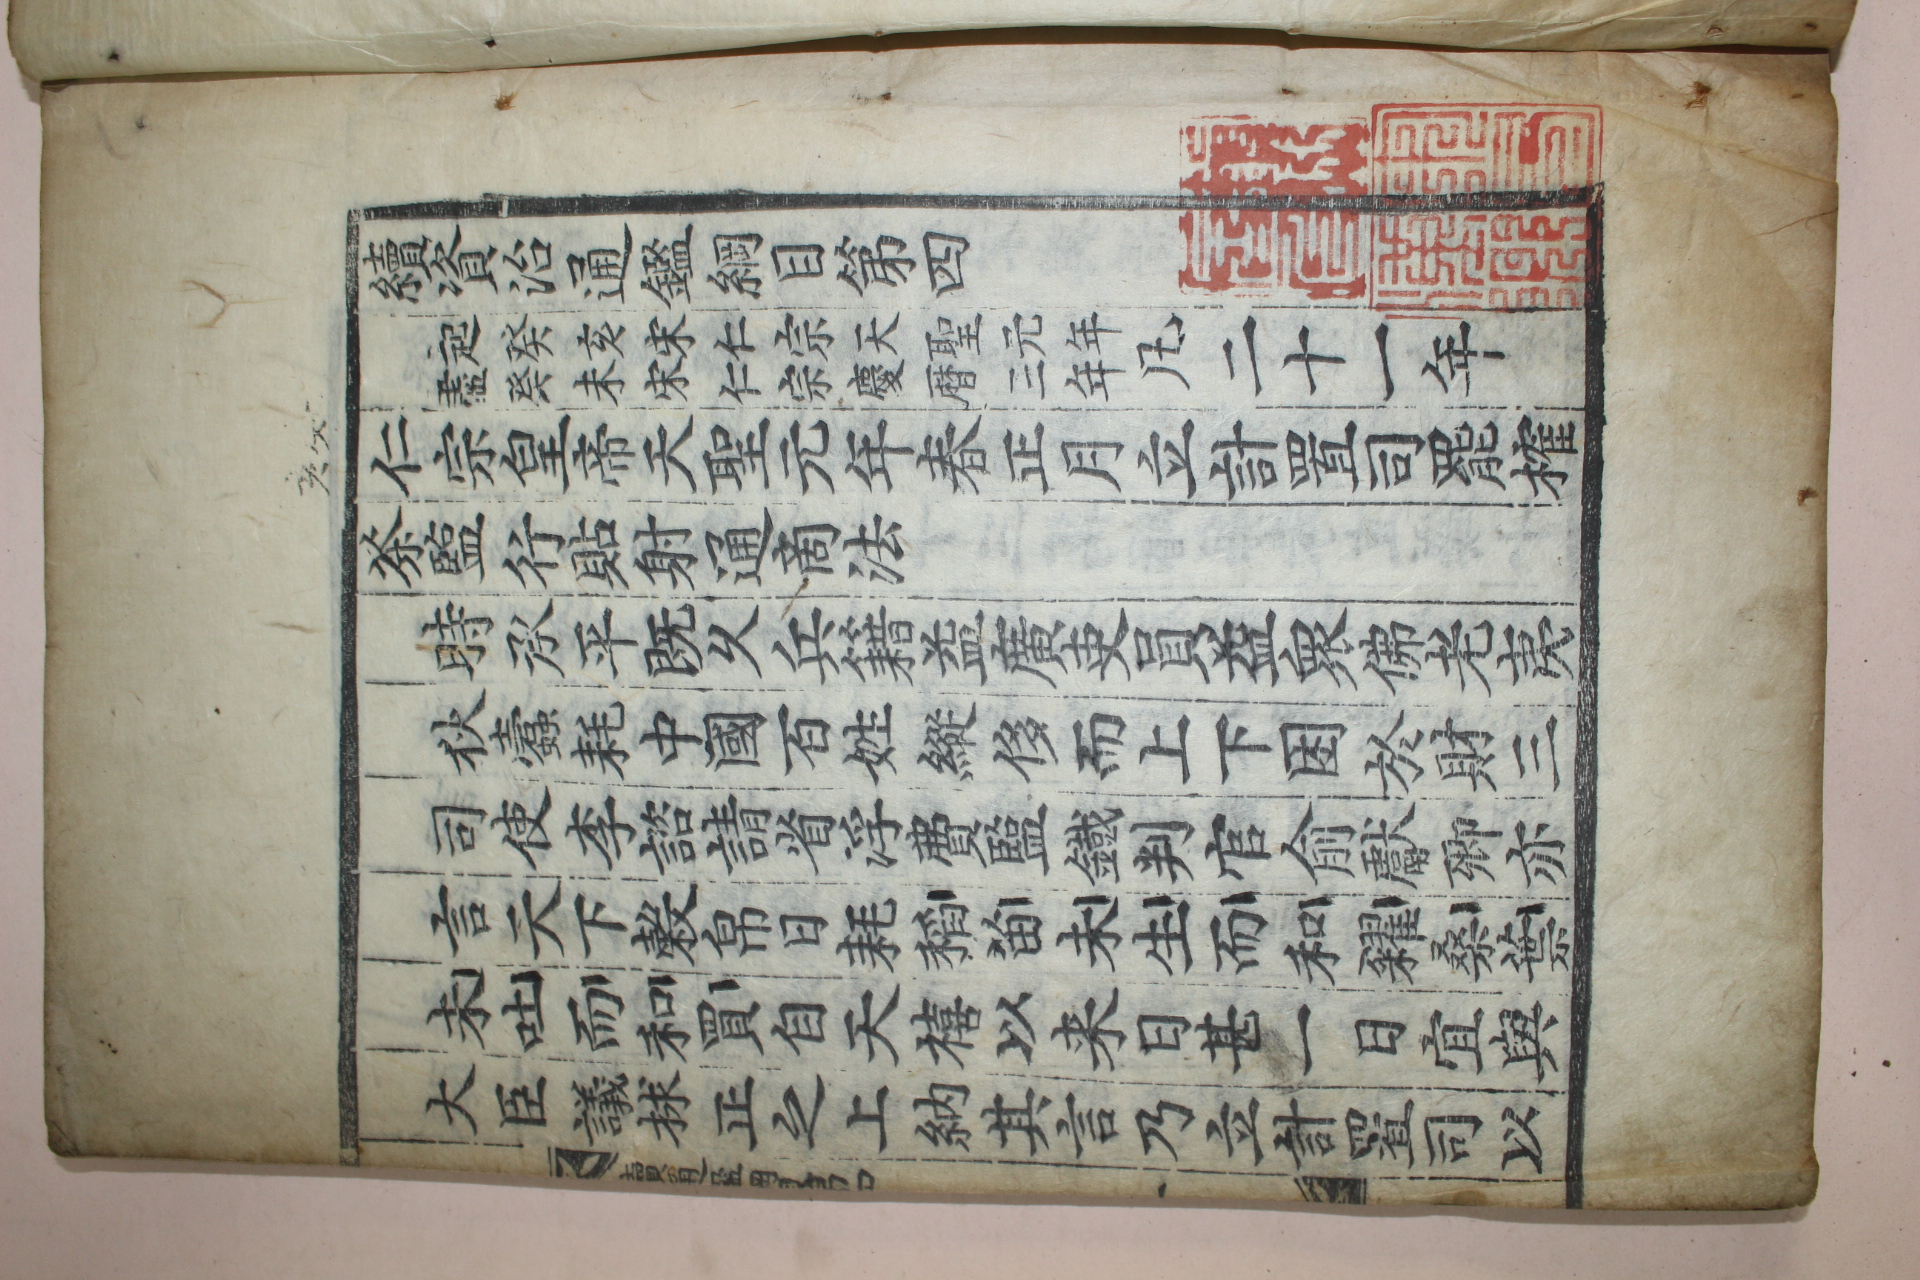 續資治通鑑綱目第四
起癸亥宋仁宗天聖元年
盡癸未宋仁宗慶曆三年
凡二十一年
仁宗皇帝天聖元年春正月立計置司罷榷
茶監行貼射通商法
時承平既久兵籍益廣吏員益衆佛老夷
狄蠹耗中國百姓縱侈而上下困於財三
司使李諮請省浮費監鐵判官俞獻卿亦
言天下穀帛日耗稻苗未生而和糴桑葉
未吐而和買自天禧以来日甚一日宜與
大臣議捄正之上納其言乃立計置司以
續通鑑綱目第四